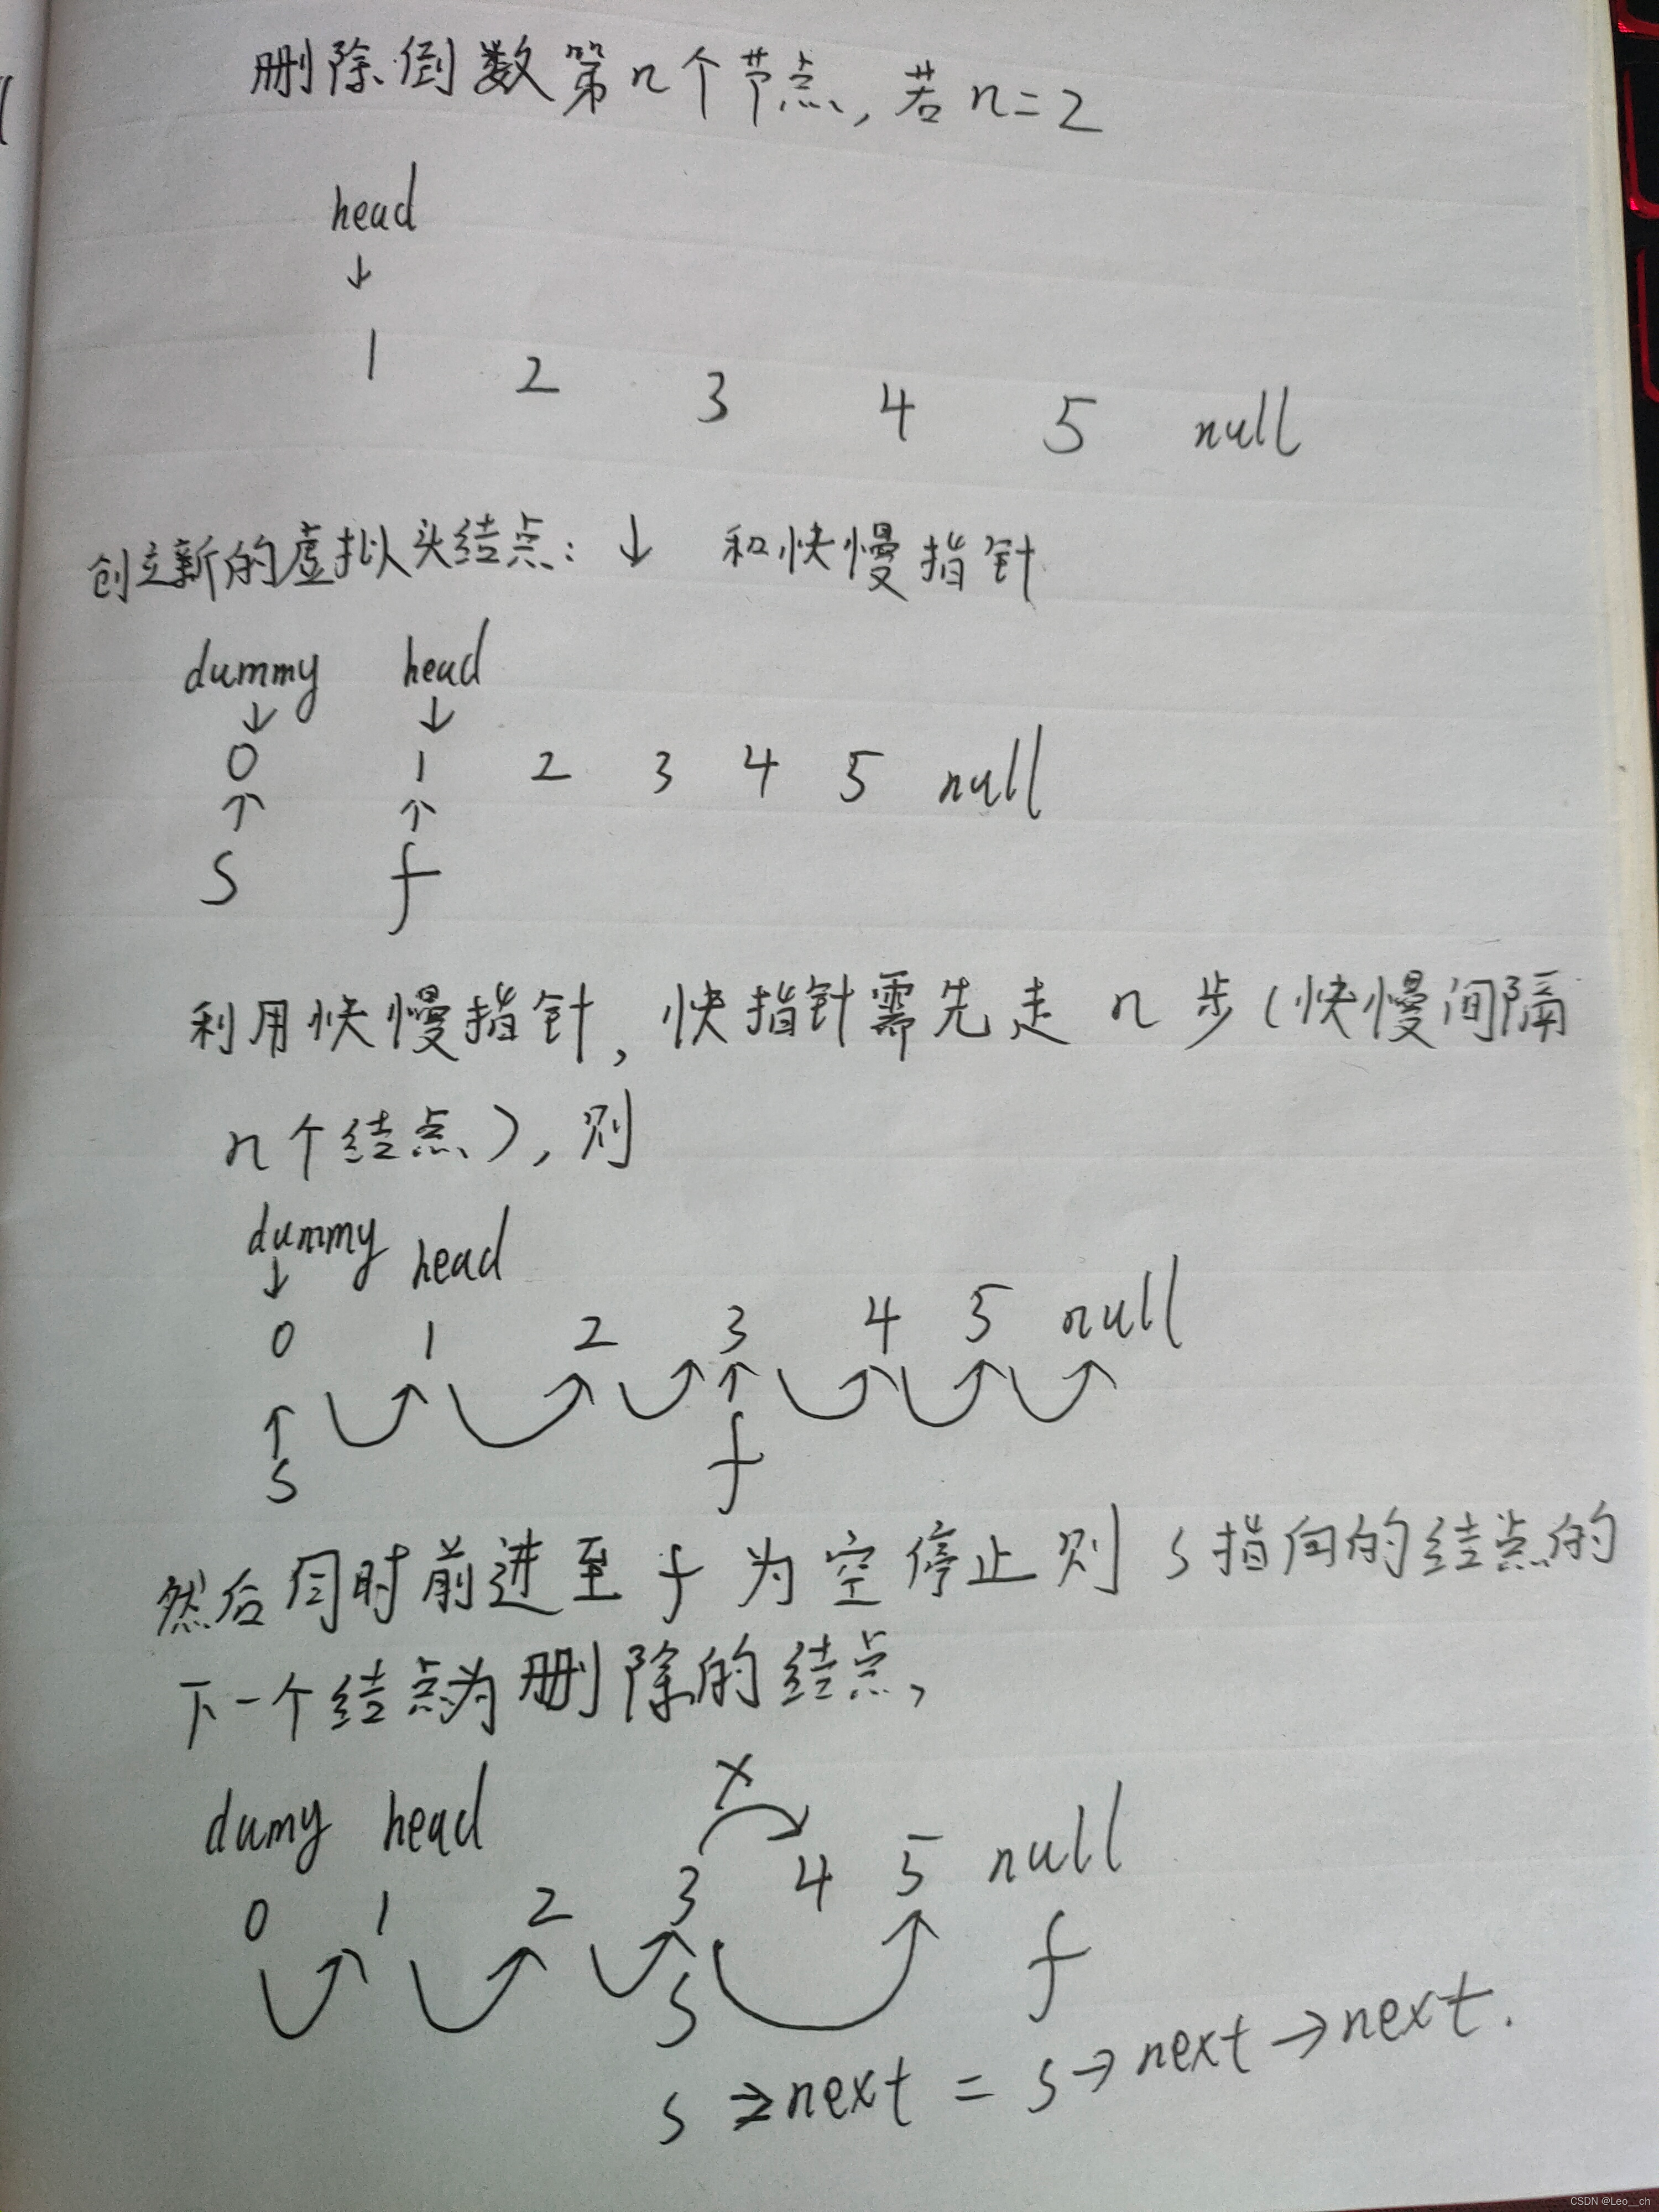 删除倒数第n个节点,若n=2
head
↓
1 2 3 4 5 null
创立新的虚拟头结点:↓ 和快慢指针
dummy head
↓ ↓
0 1 2 3 4 5 null
↑ ↑
s f
利用快慢指针,快指针需先走n步(快慢间隔
n个结点),则
dummy head
↓
0 1 2 3 4 5 null
↑ ↑
s f
然后同时前进至f为空停止则s指向的结点的
下一个结点为删除的结点,
x
dumy head
0 1 2 3 4 5 null
s f
s→next = s→next→next.
CSDN @Leo__ch